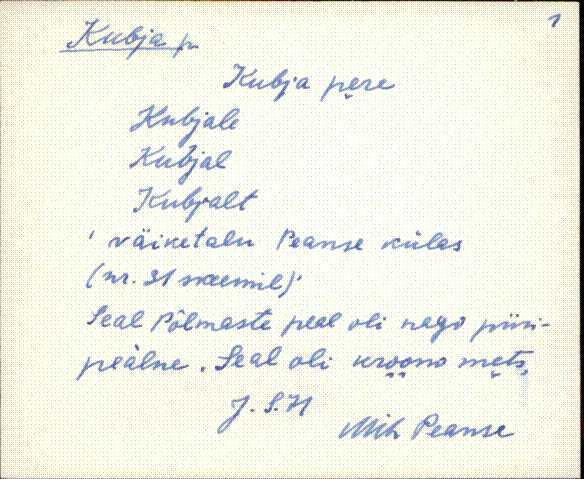 1
Kubja p.
Kubja pere
Kubjale
Kubjal
Kubjalt
' väiketalu Peanse külas
(nr. 31 skeemil)'
Seal Põlmaste peal oli nego piiri-
peälne. Seal oli kroono mets,
J. S. H
Mih Peanse